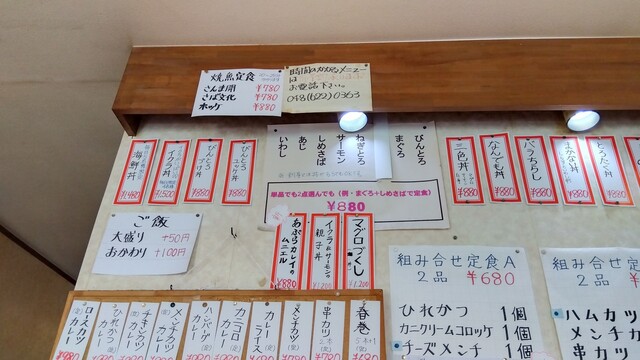 焼魚定食
さんま開 ¥780
さば文化 ¥780
ホッケ ¥880
時間のかかるメニュー
は
お電話下さい。
048(622)0363
海鮮丼
¥1480
イクラ丼
¥1,500
¥880
¥880
びんとろ
まぐろ
ねぎとろ
サーモン
しめさば
あじ
いわし
単品でも2点選んでも(例・まぐろ+しめさばで定食)
¥880
三色丼
¥880
なんでも丼
¥880
バラちらし
¥880
まかない丼
¥880
¥880
ご飯
大盛り +50円
おかわり +100円
マグロづくし
¥1,200
イクラとサーモンの
親子丼
¥1,200
あぶらカレイの
ムニエル
¥880
組み合せ定食A
2品 ¥680
ひれかつ 1個
カニクリームコロッケ 1個
チーズメンチ 1個
組み合せ
2品
ハムカツ
メンチカツ
春巻
串カツ
メンチカツ
カレー
ライス
カニコロ
カレー
ハンバーグ
カレー
メンチカツ
カレー
チキンカツ
カレー
ひれかつ
カレー
ロースカツ
カレー